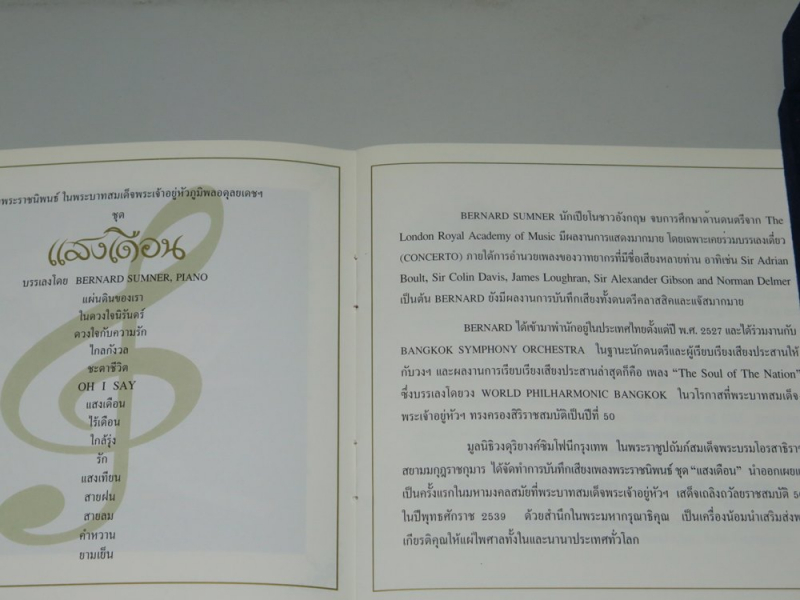 พระราชนิพนธ์ ในพระบาทสมเด็จพระเจ้าอยู่หัวภูมิพลอดุลยเดชฯ
ชุด
แสงเดือน
บรรเลงโดย BERNARD SUMNER, PIANO
แผ่นดินของเรา
ในดวงใจนิรันดร์
ดวงใจกับความรัก
ไกลกังวล
ชะตาชีวิต
OH I SAY
แสงเดือน
ไร้เดือน
ใกล้รุ่ง
รัก
แสงเทียน
สายฝน
สายลม
คำหวาน
ยามเย็น
BERNARD SUMNER นักเปียโนชาวอังกฤษ จบการศึกษาด้านดนตรีจาก The
London Royal Academy of Music มีผลงานการแสดงมากมาย โดยเฉพาะเคยร่วมบรรเลงเดี่ยว
(CONCERTO) ภายใต้การอำนวยเพลงของวาทยากรที่มีชื่อเสียงหลายท่าน อาทิเช่น Sir Adrian
Boult, Sir Colin Davis, James Loughran, Sir Alexander Gibson and Norman Delmer
เป็นต้น BERNARD ยังมีผลงานการบันทึกเสียงทั้งดนตรีคลาสสิคและแจ๊สมากมาย
BERNARD ได้เข้ามาพำนักอยู่ในประเทศไทยตั้งแต่ปี พ.ศ. 2527 และได้ร่วมงานกับ
BANGKOK SYMPHONY ORCHESTRA ในฐานะนักดนตรีและผู้เรียบเรียงเสียงประสานให้
กับวงฯ และผลงานการเรียบเรียงเสียงประสานล่าสุดก็คือ เพลง “The Soul of The Nation”
ซึ่งบรรเลงโดยวง WORLD PHILHARMONIC BANGKOK ในวโรกาสที่พระบาทสมเด็จ
พระเจ้าอยู่หัวฯ ทรงครองสิริราชสมบัติเป็นปีที่ 50
มูลนิธิวงดุริยางค์ซิมโฟนีกรุงเทพ ในพระราชูปถัมภ์สมเด็จพระบรมโอรสาธิราช
สยามมกุฎราชกุมาร ได้จัดทำการบันทึกเสียงเพลงพระราชนิพนธ์ ชุด “แสงเดือน” นำออกเผยแ
เป็นครั้งแรกในมหามงคลสมัยที่พระบาทสมเด็จพระเจ้าอยู่หัวฯ เสด็จเถลิงถวัลยราชสมบัติ 50
ในปีพุทธศักราช 2539 ด้วยสำนึกในพระมหากรุณาธิคุณ เป็นเครื่องน้อมนำเสริมส่งพ
เกียรติคุณให้แผ่ไพศาลทั้งในและนานาประเทศทั่วโลก